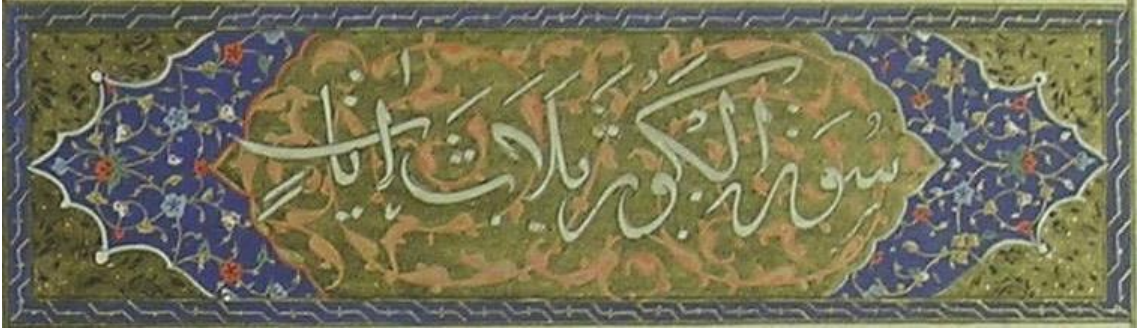 سورة الكوثر ثلاث ايات